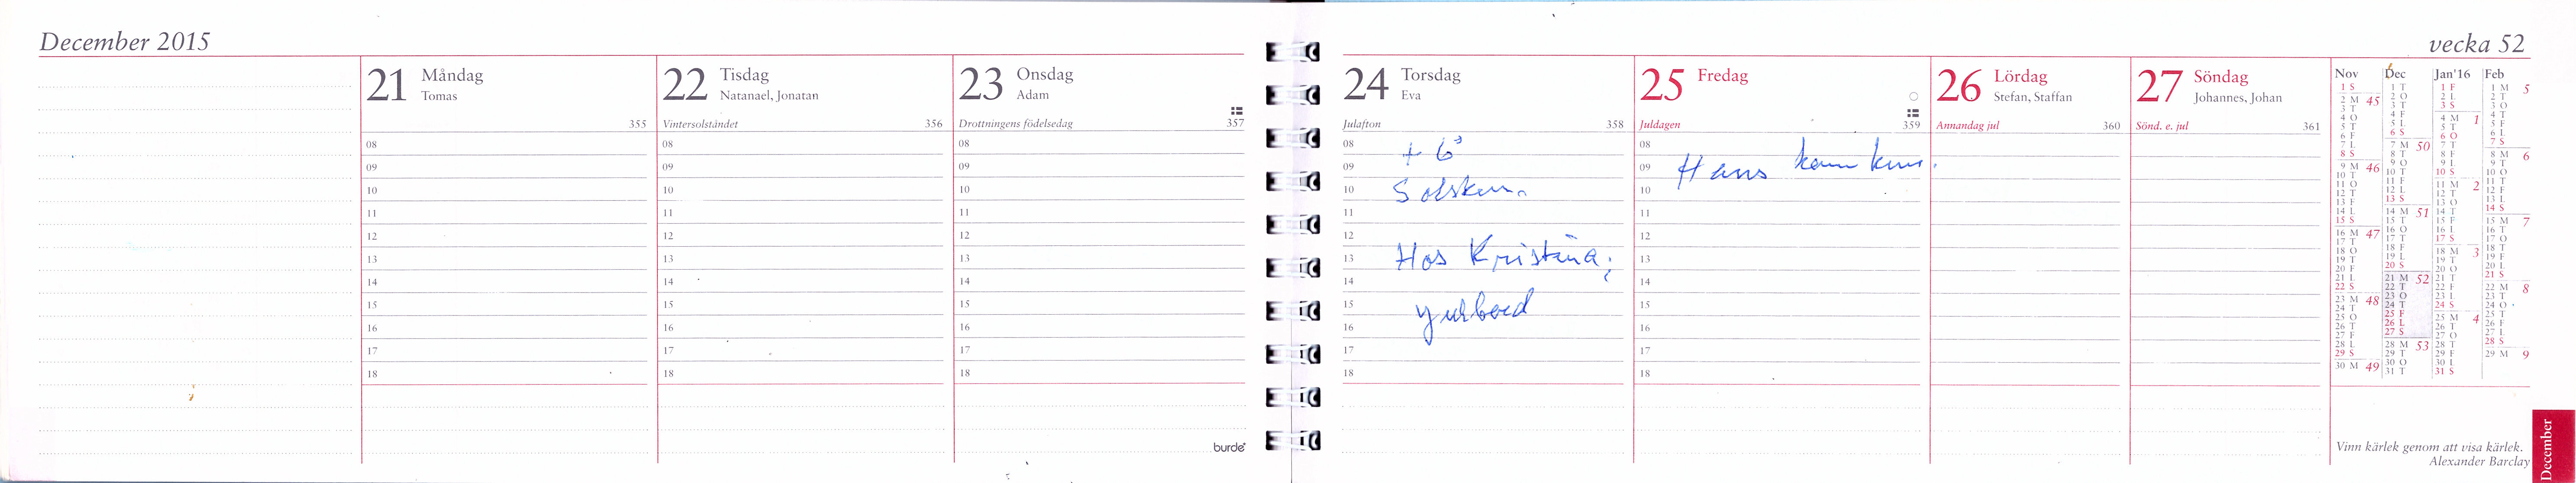 December 2015
vecka 52
21 Måndag
Tomas
355
08
09
10
11
12
13
14
15
16
17
18
22 Tisdag
Natanael, Jonatan
Vintersolståndet 356
08
09
10
11
12
13
14
15
16
17
18
23 Onsdag
Adam
Drottningens födelsedag 357
08
09
10
11
12
13
14
15
16
17
18
burde
24 Torsdag
Eva
Julafton 358
08 + 6°
09
10 Solsken
11
12
13 Hos Kristina;
14
15
16
17
18
25 Fredag
Juldagen 359
08
09 Hans kom
10
11
12
13
14
15
16
17
18
26 Lördag
Stefan, Staffan
Annandag jul 360
27 Söndag
Johannes, Johan
Sönd. e. jul 361
Nov Dec Jan'16 Feb
1 S 1 T 1 F 1 M 5
2 M 45 2 O 2 L 2 T
3 T 3 T 3 S 3 O
4 O 4 F 4 M 1 4 T
5 T 5 L 5 T 5 F
6 F 6 S 6 O 6 L
7 L 7 M 50 7 T 7 S
8 S 8 T 8 F 8 M 6
9 M 46 9 O 9 L 9 T
10 T 10 T 10 S 10 O
11 O 11 F 11 M 2 11 T
12 T 12 L 12 T 12 F
13 F 13 S 13 O 13 L
14 L 14 M 51 14 T 14 S
15 S 15 T 15 F 15 M 7
16 M 47 16 O 16 L 16 T
17 T 17 T 17 S 17 O
18 O 18 F 18 M 3 18 T
19 T 19 L 19 T 19 F
20 F 20 S 20 O 20 L
21 L 21 M 52 21 T 21 S
22 S 22 T 22 F 22 M 8
23 M 48 23 O 23 L 23 T
24 T 24 T 24 S 24 O
25 O 25 F 25 M 4 25 T
26 T 26 L 26 T 26 F
27 F 27 S 27 O 27 L
28 L 28 M 53 28 T 28 S
29 S 29 T 29 F 29 M 9
30 M 49 30 O 30 L
31 T 31 S
Vinn kärlek genom att visa kärlek.
Alexander Barclay
December